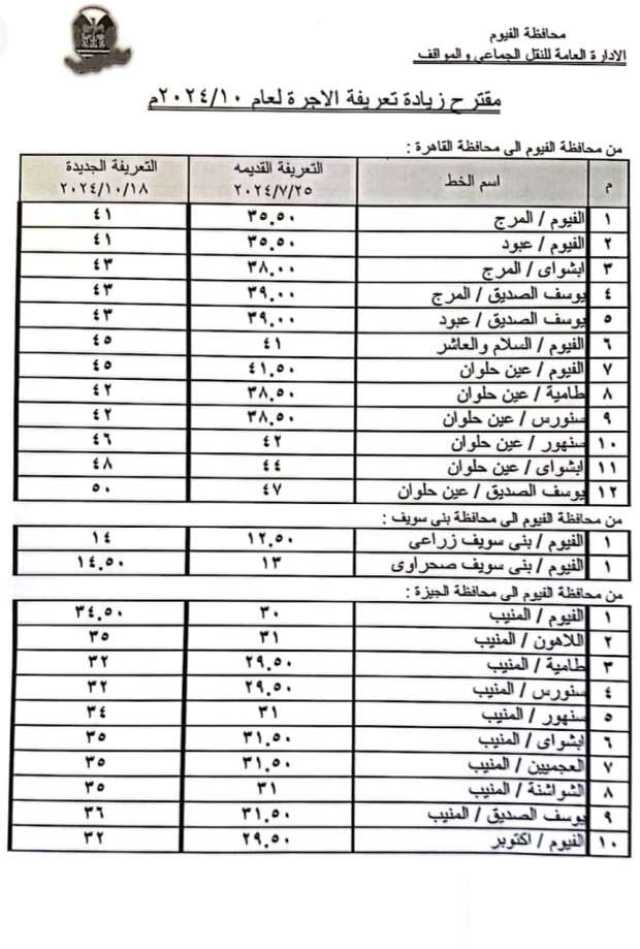 محافظة الفيوم
الادارة العامة للنقل الجماعي والمواقف
مقترح زيادة تعريفة الاجرة لعام ٢٠٢٤/١٠م
من محافظة الفيوم الى محافظة القاهرة :
م اسم الخط التعريفة القديمه ٢٠٢٤/٧/٢٥ التعريفة الجديدة ٢٠٢٤/١٠/١٨
١ الفيوم / المرج ٣٥.٥٠ ٤١
٢ الفيوم / عبود ٣٥.٥٠ ٤١
٣ ابشواى / المرج ٣٨.٠٠ ٤٣
٤ يوسف الصديق / المرج ٣٩.٠٠ ٤٣
٥ يوسف الصديق / عبود ٣٩.٠٠ ٤٣
٦ الفيوم / السلام والعاشر ٤١ ٤٥
٧ الفيوم / عين حلوان ٤١.٥٠ ٤٥
٨ طامية / عين حلوان ٣٨.٥٠ ٤٢
٩ سنورس / عين حلوان ٣٨.٥٠ ٤٢
١٠ سنهور / عين حلوان ٤٢ ٤٦
١١ ابشواى / عين حلوان ٤٤ ٤٨
١٢ يوسف الصديق / عين حلوان ٤٧ ٥٠
من محافظة الفيوم الى محافظة بنى سويف :
١ الفيوم / بنى سويف زراعى ١٢.٥٠ ١٤
١ الفيوم / بنى سويف صحراوى ١٣ ١٤.٥٠
من محافظة الفيوم الى محافظة الجيزة :
١ الفيوم / المنيب ٣٠ ٣٤.٥٠
٢ اللاهون / المنيب ٣١ ٣٥
٣ طامية / المنيب ٢٩.٥٠ ٣٢
٤ سنورس / المنيب ٢٩.٥٠ ٣٢
٥ سنهور / المنيب ٣١ ٣٤
٦ ابشواى / المنيب ٣١.٥٠ ٣٥
٧ العجميين / المنيب ٣١.٥٠ ٣٥
٨ الشواشنة / المنيب ٣١ ٣٥
٩ يوسف الصديق / المنيب ٣١.٥٠ ٣٦
١٠ الفيوم / اكتوبر ٢٩.٥٠ ٣٢